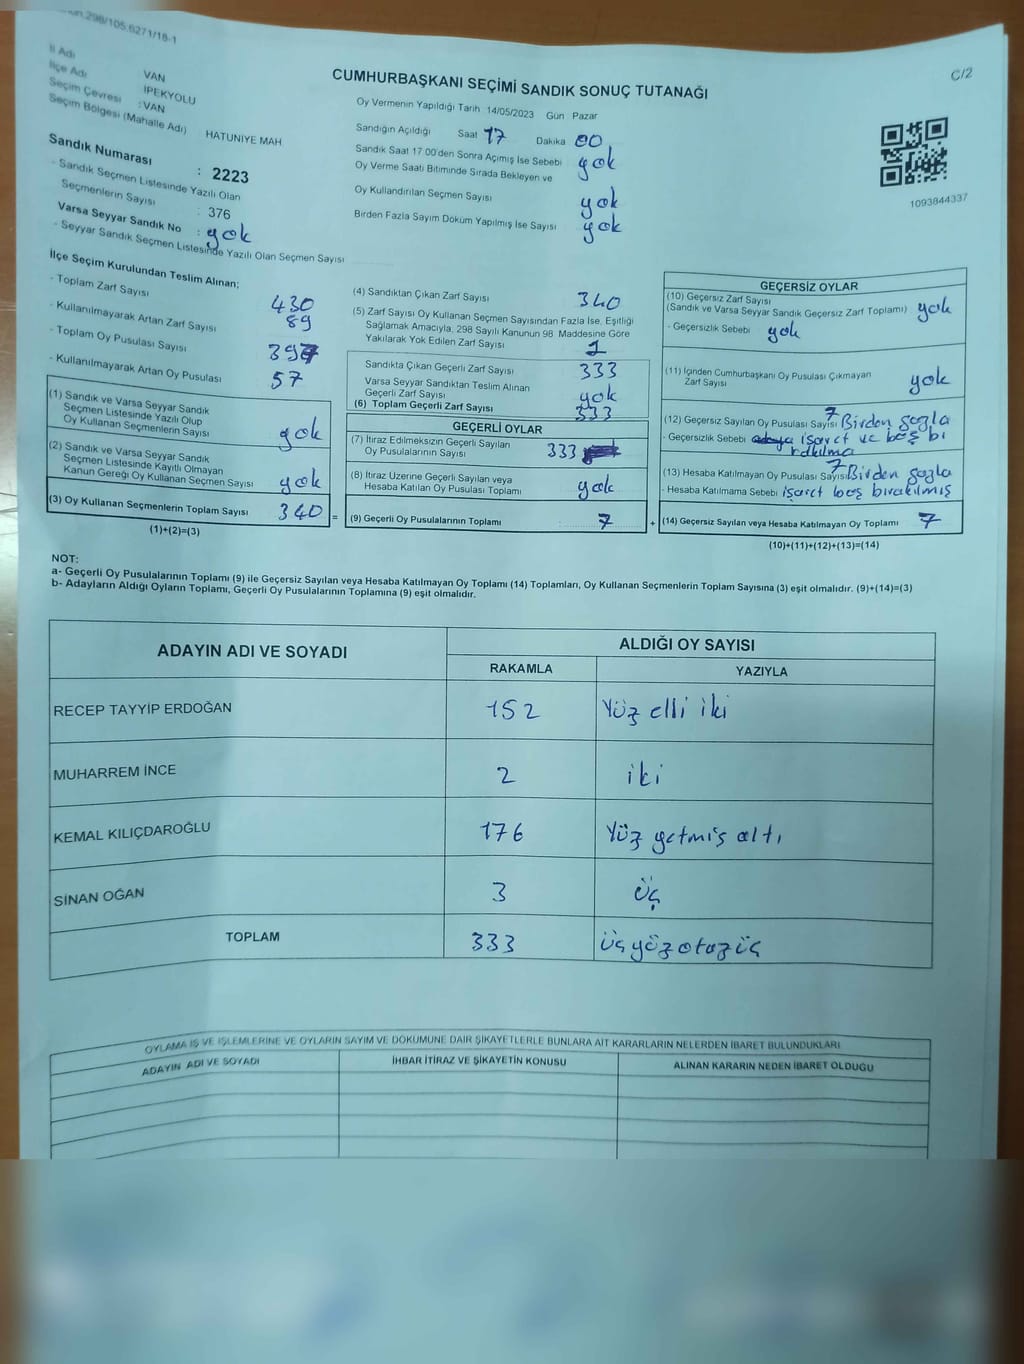 298/105.6271/18-1
C/2
İl Adı VAN
İlçe Adı İPEKYOLU
Seçim Çevresi : VAN
Seçim Bölgesi (Mahalle Adı) HATUNİYE MAH.
Sandık Numarası : 2223
- Sandık Seçmen Listesinde Yazılı Olan
Seçmenlerin Sayısı : 376
Varsa Seyyar Sandık No : yok
- Seyyar Sandık Seçmen Listesinde Yazılı Olan Seçmen Sayısı
CUMHURBAŞKANI SEÇİMİ SANDIK SONUÇ TUTANAĞI
Oy Vermenin Yapıldığı Tarih 14/05/2023 Gün Pazar
Sandığın Açıldığı Saat 17 Dakika 00
Sandık Saat 17:00'den Sonra Açımış İse Sebebi yok
Oy Verme Saati Bitiminde Sırada Bekleyen ve
Oy Kullandırılan Seçmen Sayısı yok
Birden Fazla Sayım Döküm Yapılmış İse Sayısı yok
1093844337
İlçe Seçim Kurulundan Teslim Alınan;
- Toplam Zarf Sayısı 430
- Kullanılmayarak Artan Zarf Sayısı 89
- Toplam Oy Pusulası Sayısı 397
- Kullanılmayarak Artan Oy Pusulası 57
(1) Sandık ve Varsa Seyyar Sandık
Seçmen Listesinde Yazılı Olup
Oy Kullanan Seçmenlerin Sayısı yok
(2) Sandık ve Varsa Seyyar Sandık
Seçmen Listesinde Kayıtlı Olmayan
Kanun Gereği Oy Kullanan Seçmen Sayısı yok
(3) Oy Kullanan Seçmenlerin Toplam Sayısı 340 =
(1)+(2)=(3)
(4) Sandıktan Çıkan Zarf Sayısı 340
(5) Zarf Sayısı Oy Kullanan Seçmen Sayısından Fazla İse, Eşitliği
Sağlamak Amacıyla, 298 Sayılı Kanunun 98. Maddesine Göre
Yakılarak Yok Edilen Zarf Sayısı 1
Sandıkta Çıkan Geçerli Zarf Sayısı 333
Varsa Seyyar Sandıktan Teslim Alınan
Geçerli Zarf Sayısı yok
(6) Toplam Geçerli Zarf Sayısı 333
GEÇERLİ OYLAR
(7) İtiraz Edilmeksizin Geçerli Sayılan
Oy Pusulalarının Sayısı 333
(8) İtiraz Üzerine Geçerli Sayılan veya
Hesaba Katılan Oy Pusulası Toplamı yok
(9) Geçerli Oy Pusulalarının Toplamı : 7 +
GEÇERSİZ OYLAR
(10) Geçersiz Zarf Sayısı
(Sandık ve Varsa Seyyar Sandık Geçersiz Zarf Toplamı) yok
- Geçersizlik Sebebi yok
(11) İçinden Cumhurbaşkanı Oy Pusulası Çıkmayan
Zarf Sayısı yok
(12) Geçersiz Sayılan Oy Pusulası Sayısı 7 Birden fazla
- Geçersizlik Sebebi işaret ve boş bı
rakılma
(13) Hesaba Katılmayan Oy Pusulası Sayısı 7 Birden fazla
- Hesaba Katılmama Sebebi işaret boş bırakılmış
(14) Geçersiz Sayılan veya Hesaba Katılmayan Oy Toplamı 7
(10)+(11)+(12)+(13)=(14)
NOT:
a- Geçerli Oy Pusulalarının Toplamı (9) ile Geçersiz Sayılan veya Hesaba Katılmayan Oy Toplamı (14) Toplamları, Oy Kullanan Seçmenlerin Toplam Sayısına (3) eşit olmalıdır. (9)+(14)=(3)
b- Adayların Aldığı Oyların Toplamı, Geçerli Oy Pusulalarının Toplamına (9) eşit olmalıdır.
ADAYIN ADI VE SOYADI ALDIĞI OY SAYISI
RAKAMLA YAZIYLA
RECEP TAYYİP ERDOĞAN 152 Yüz elli iki
MUHARREM İNCE 2 iki
KEMAL KILIÇDAROĞLU 176 Yüz yetmiş altı
SİNAN OĞAN 3 üç
TOPLAM 333 üçyüzotuzüç
OYLAMA İŞ VE İŞLEMLERİNE VE OYLARIN SAYIM VE DÖKÜMÜNE DAİR ŞİKAYETLERLE BUNLARA AİT KARARLARIN NELERDEN İBARET BULUNDUKLARI
ADAYIN ADI VE SOYADI İHBAR İTİRAZ VE ŞİKAYETİN KONUSU ALINAN KARARIN NEDEN İBARET OLDUĞU